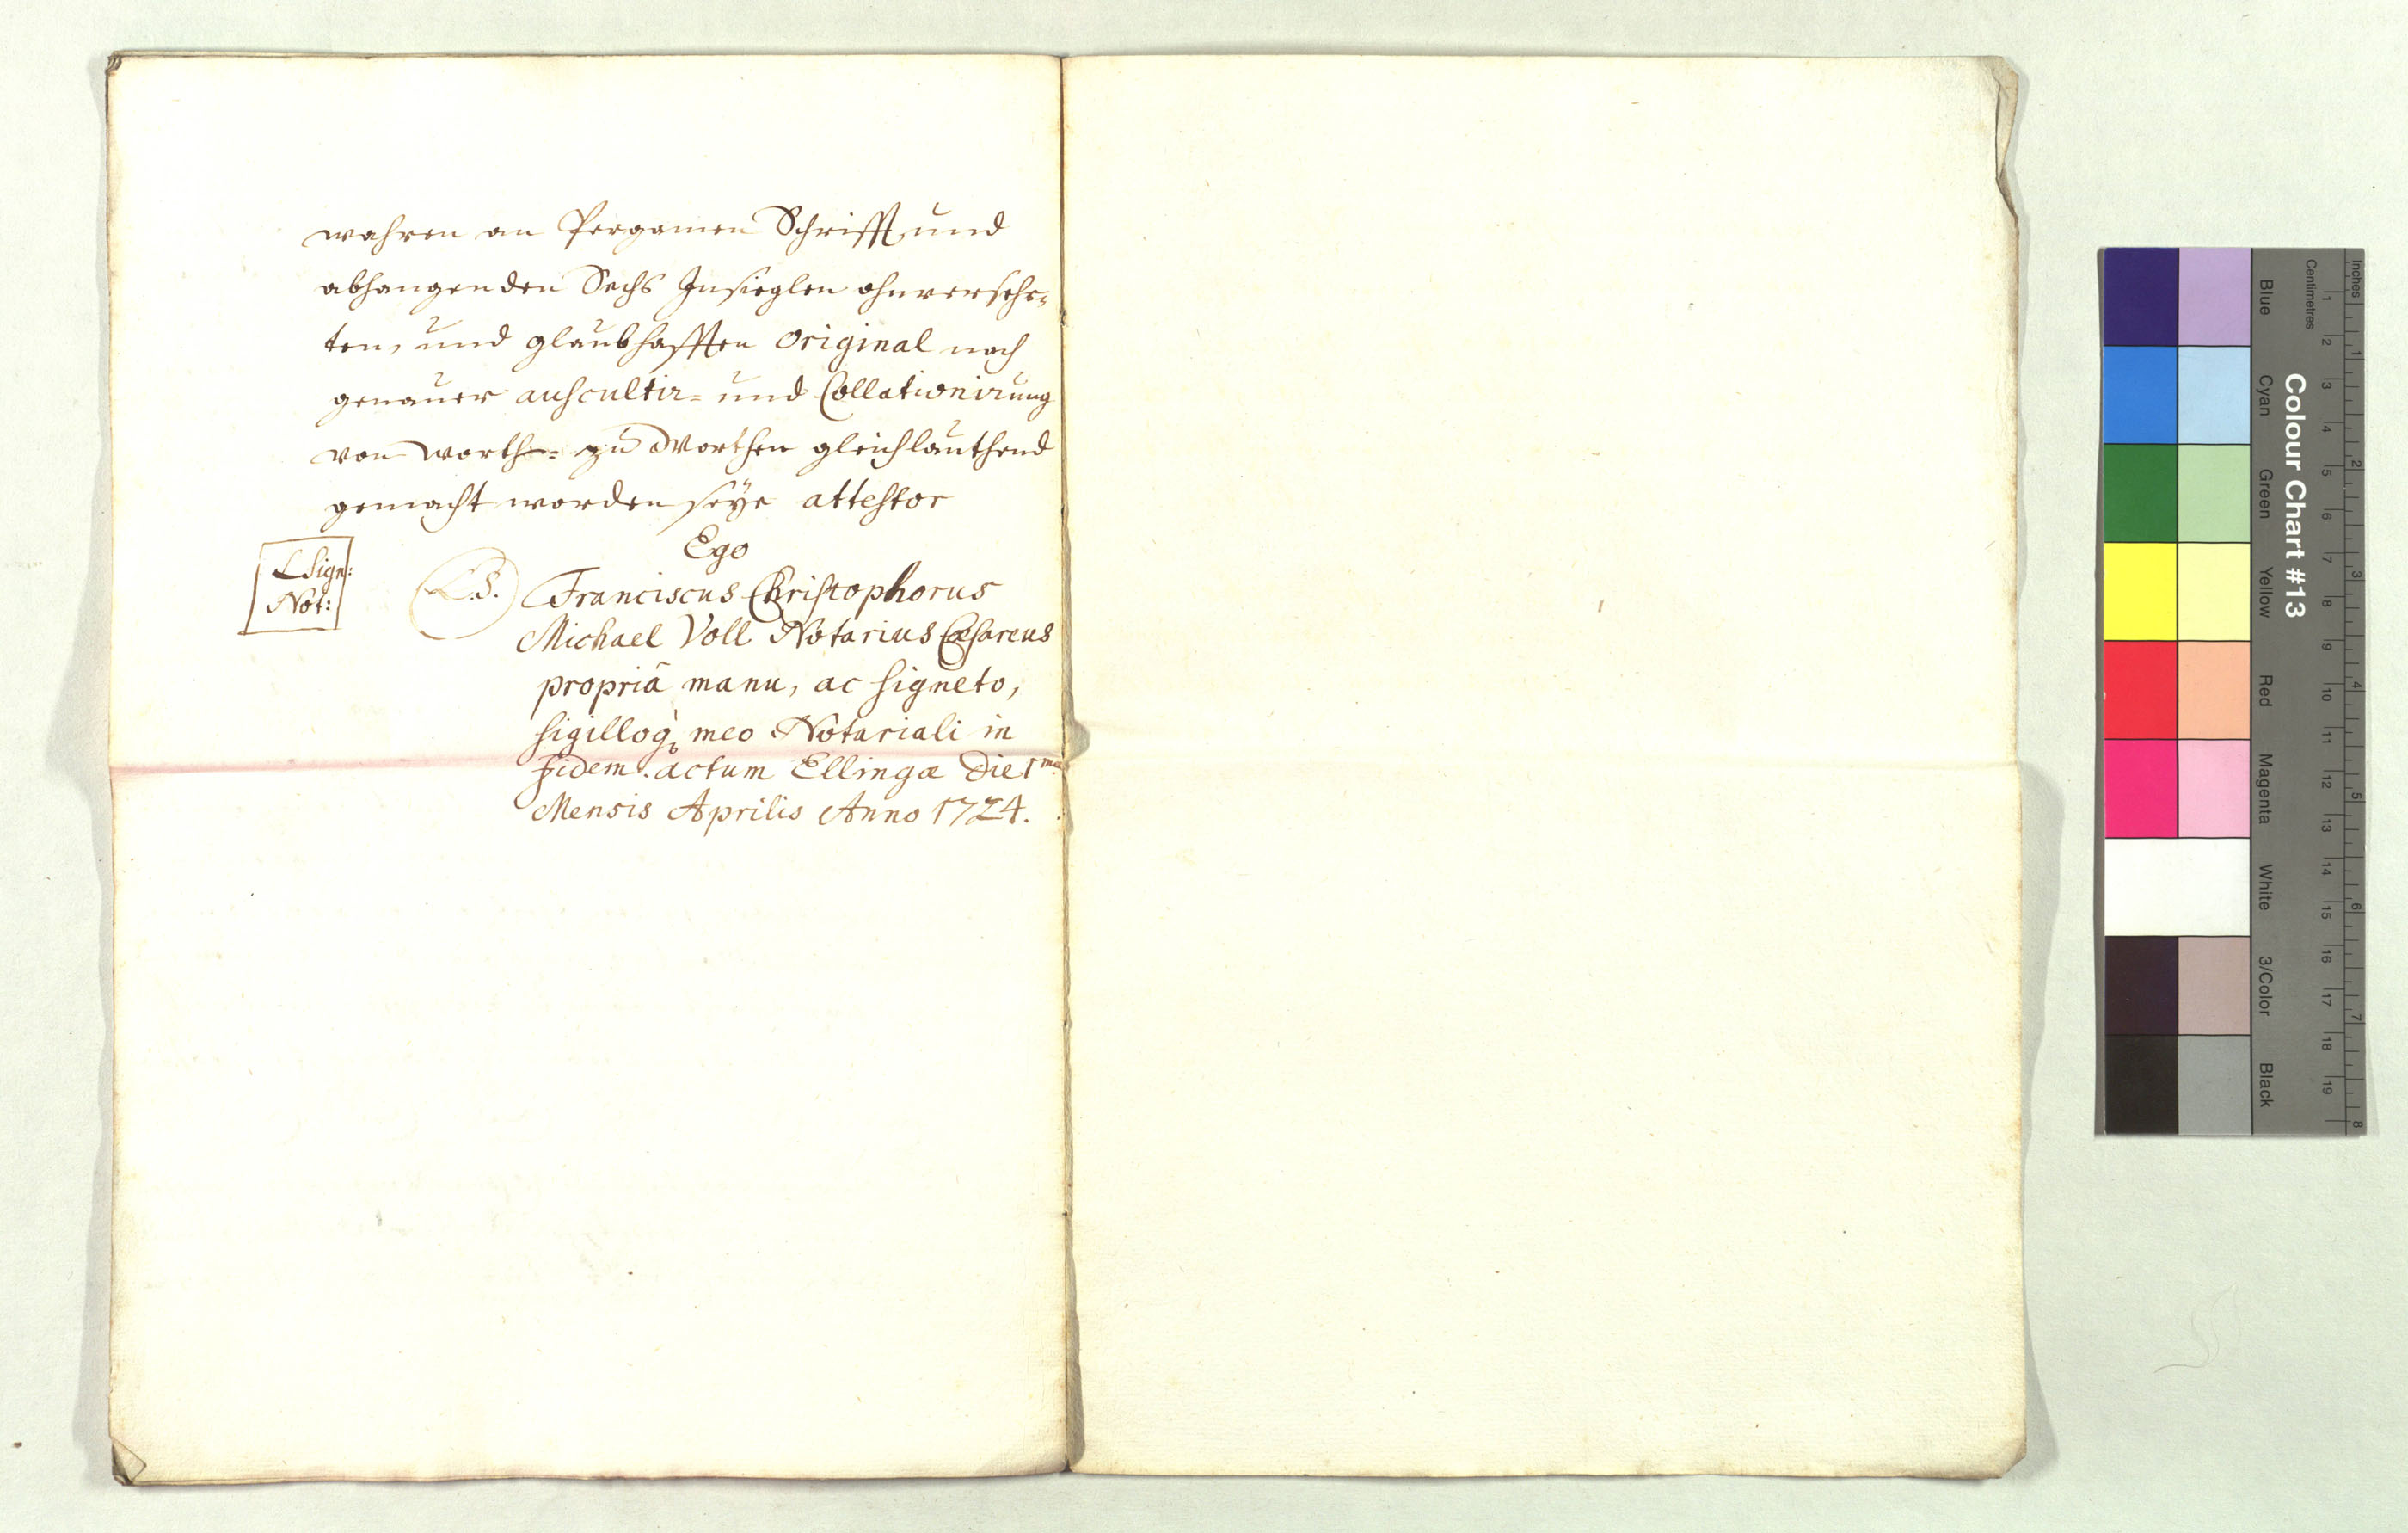 wahren an Pergamen Schrifft und
abhangenden Sechs Insieglen ohnversehr=
ten, und glaubhafften Original nach
genauer auscultir= und Collationirung
von worth= zu Worthen gleichlauthend
gemacht worden seÿe attestor
Ego
LSign:
Not:
L.S.
Franciscus Christophorus
Michael Voll Notarius Cæsareus
propriâ manu, ac signeto,
sigilloq̀ meo Notariali in
fidem. actum Ellingæ Die 1ma
Mensis Aprilis Anno 1724.
Colour Chart #13
Blue
Cyan
Green
Yellow
Red
Magenta
White
3/Color
Black
Inches
1 2 3 4 5 6 7 8
Centimetres
1 2 3 4 5 6 7 8 9 10 11 12 13 14 15 16 17 18 19